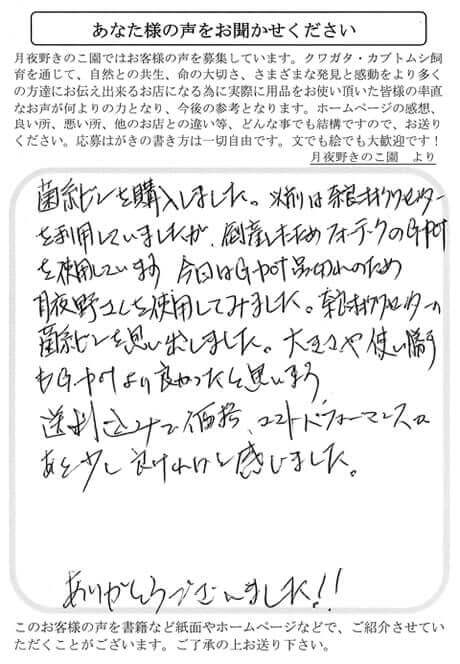 あなた様の声をお聞かせください
月夜野きのこ園ではお客様の声を募集しています。クワガタ・カブトムシ飼
育を通じて、自然との共生、命の大切さ、さまざまな発見と感動をより多く
の方達にお伝え出来るお店になる為に実際に用品をお使い頂いた皆様の率直
なお声が何よりの力となり、今後の参考となります。ホームページの感想、
良い所、悪い所、他のお店との違い等、どんな事でも結構ですので、お送り
ください。応募はがきの書き方は一切自由です。文でも絵でも大歓迎です！
月夜野きのこ園　より
菌糸ビンを購入しました。以前は奈良オオクワセンター
を利用していましたが、倒産したためフォーテークのG-pot
を使用しています 今回はG-pot品切れのため
月夜野さんを使用してみました。奈良オオクワセンターの
菌糸ビンを思い出しました。大きさや使い勝手
もG-potより良かったと思います
送料込みで価格、コストパフォーマンスは
あと少し 良ければと感じました。
ありがとうございました!!
このお客様の声を書籍など紙面やホームページなどで、ご紹介させていただ
だくことがございます。ご了承の上お送り下さい。